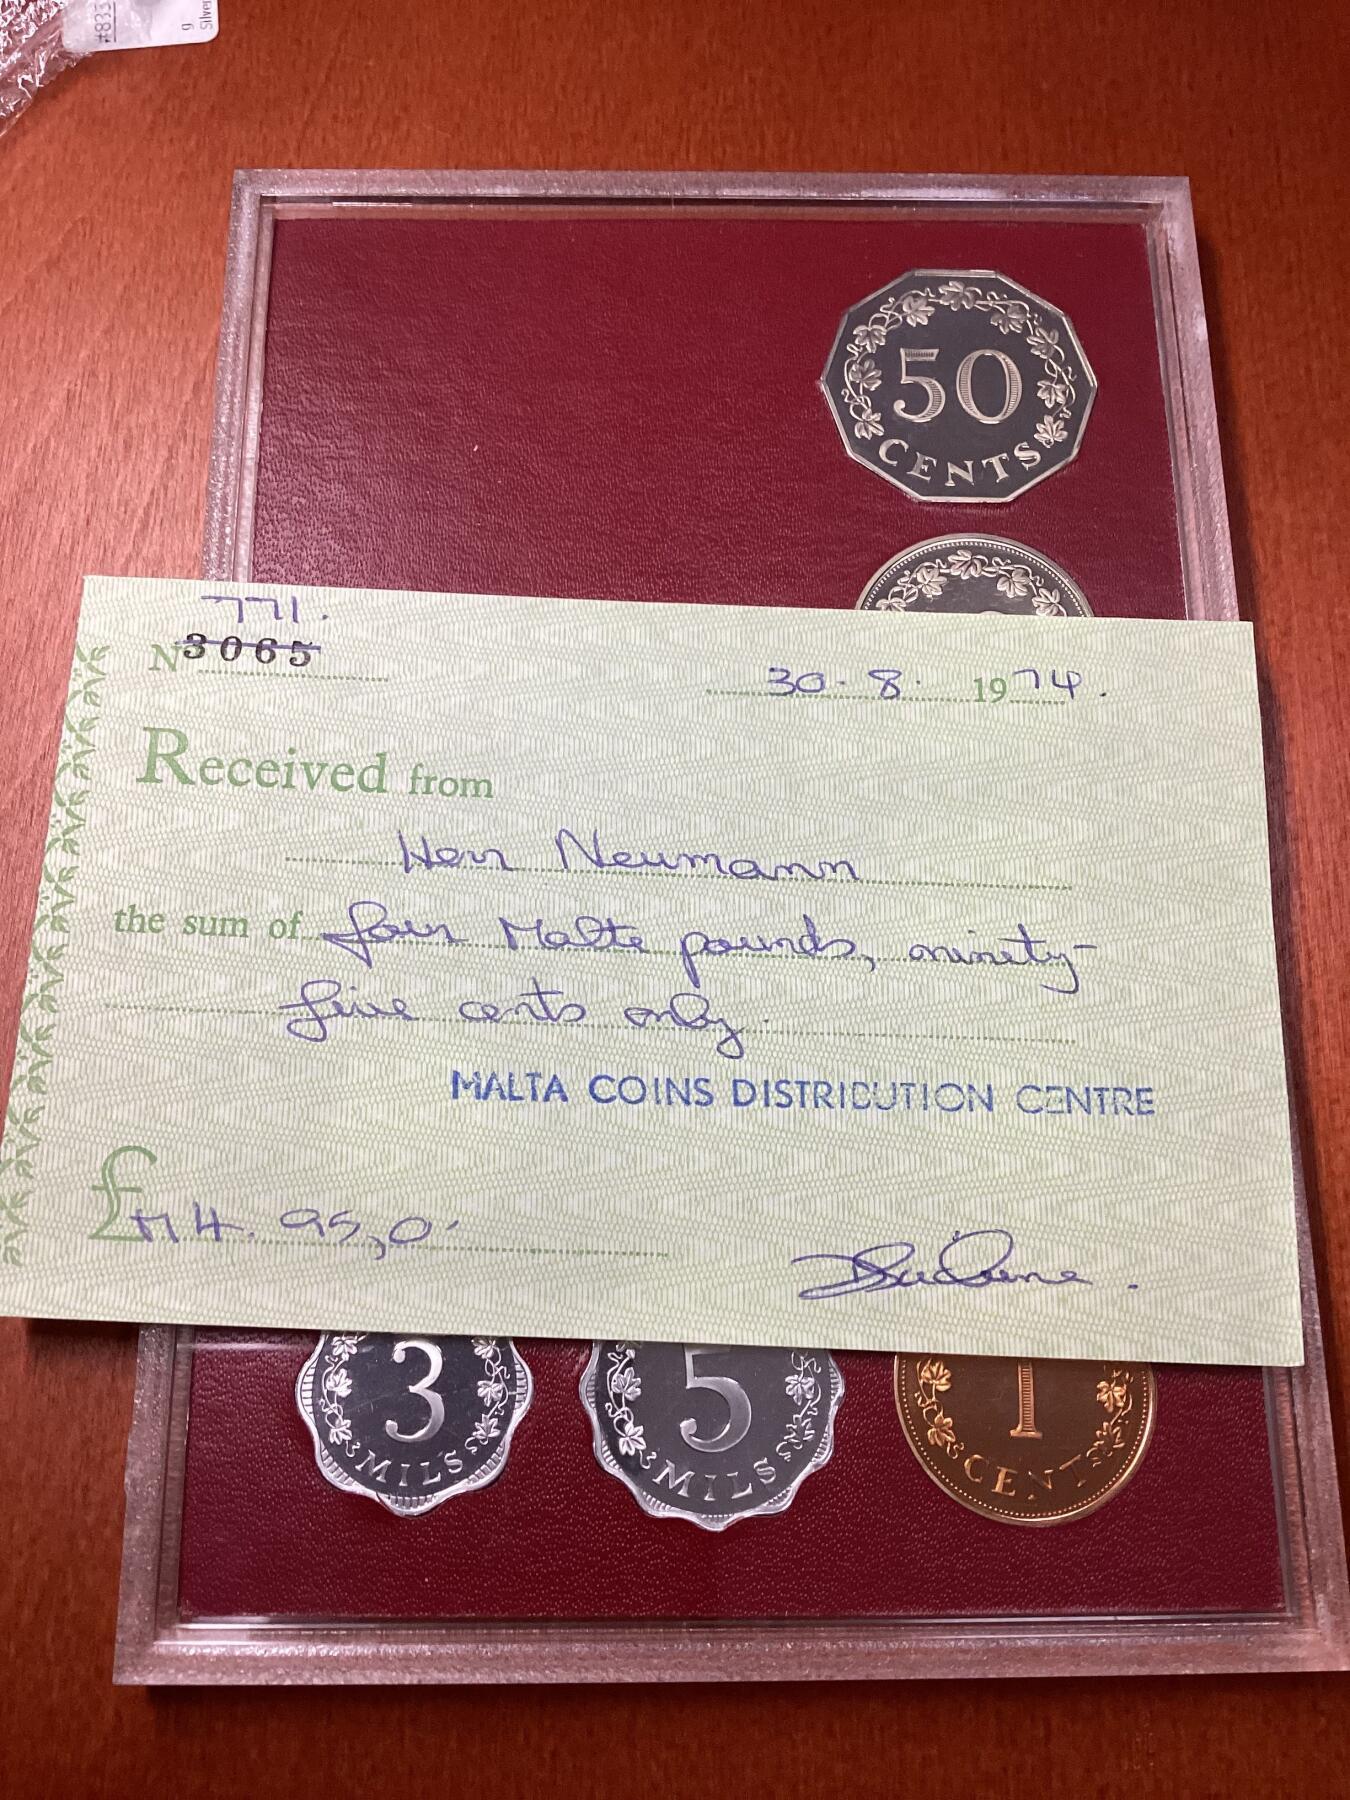 #833
g
Silver
50
CENTS
771.
No 3065
30.8. 1974.
Received from
Herr Neumann
the sum of four Malta pounds, ninety-
five cents only.
MALTA COINS DISTRIBUTION CENTRE
£M4.95,0.
3
MILS
5
MILS
1
CENT